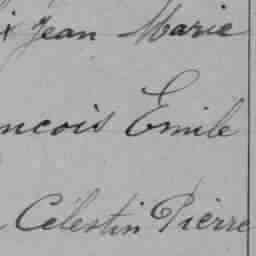 x Jean Marie
ncois Emile
Célestin Pierre